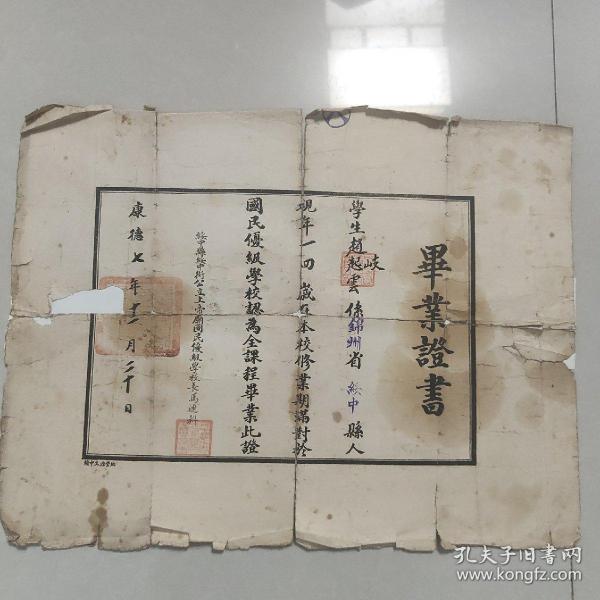 畢業證書
學生趙起雲係錦州省綏中縣人
岐
現年一四歲在本校修業期滿對於
國民優級學校認為全課程畢業此證
綏中縣綏中街公立上帝廟國民優級學校長馬連科
康德七年十二月二十日
孔夫子旧书网
www.kongfz.com